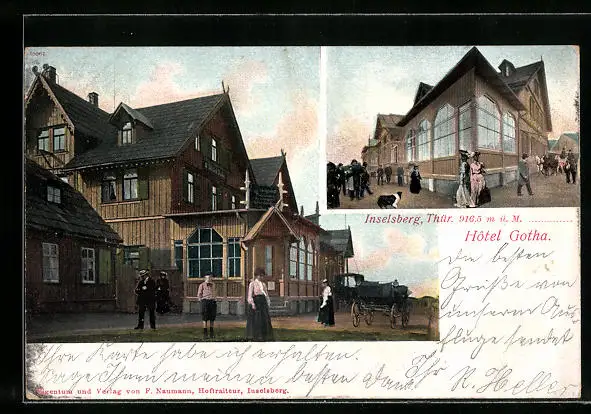 Inselsberg, Thür. 916,5 m ü. M.
Hôtel Gotha.
die besten
Grüße von
unserem Aus-
fluge sendet
Ihre Karte habe ich erhalten.
Sage Ihnen meinen besten Dank. Ihr
R. Heller
Eigentum und Verlag von F. Naumann, Hoftraiteur, Inselsberg.